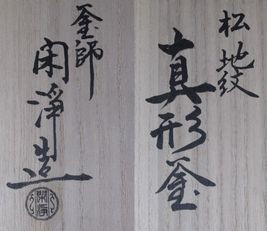 松地紋
真形釜
釜師
閑淨造